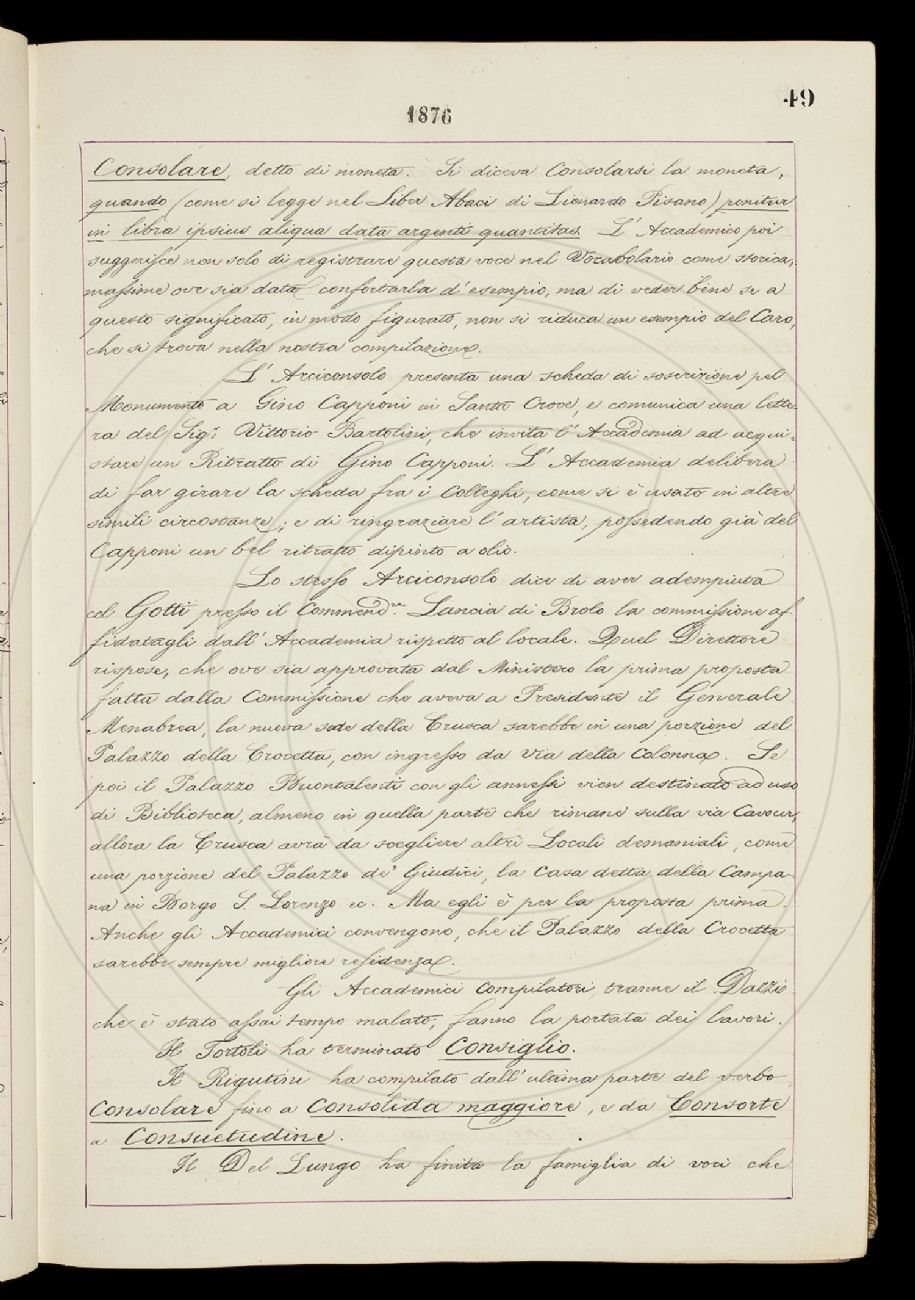 49
1876
Consolare, detto di moneta. Si diceva Consolarsi la moneta,
quando (come si legge nel Liber Abaci di Lionardo Pisano) ponitur
in libra ipsius aliqua data argenti quantitas. L' Accademico poi
suggerisce non solo di registrare questa voce nel Vocabolario come storica,
massime ove sia data confortarla d'esempio, ma di veder bene se a
questo significato, in modo figurato, non si riduca un esempio del Caro,
che si trova nella nostra compilazione.
L' Arciconsolo presenta una scheda di soscrizione pel
Monumento a Gino Capponi in Santa Croce, e comunica una lette-
ra del Sig.r Vittorio Bartolini, che invita l'Accademia ad acqui-
stare un Ritratto di Gino Capponi. L' Accademia delibera
di far girare la scheda fra i Colleghi, come si è usato in altre
simili circostanze; e di ringraziare l'artista, possedendo già del
Capponi un bel ritratto dipinto a olio.
Lo stesso Arciconsolo dice di aver adempiuta
col Gotti presso il Commend.re Lancia di Brolo la commissione af-
fidatagli dall' Accademia rispetto al locale. Quel Direttore
rispose, che ove sia approvata dal Ministero la prima proposta
fatta dalla Commissione che aveva a Presidente il Generale
Menabrea, la nuova sede della Crusca sarebbe in una porzione del
Palazzo della Crocetta, con ingresso da Via della Colonna. Se
poi il Palazzo Buontalenti con gli annessi vien destinato ad uso
di Biblioteca, almeno in quella parte che rimane sulla via Cavour,
allora la Crusca avrà da scegliere altri Locali demaniali, come
una porzione del Palazzo de' Giudici, la Casa detta della Campa-
na in Borgo S. Lorenzo ec. Ma egli è per la proposta prima.
Anche gli Accademici convengono, che il Palazzo della Crocetta
sarebbe sempre migliore residenza.
Gli Accademici Compilatori, tranne il Dazzi
che è stato assai tempo malato, fanno la portata dei lavori.
Il Tortoli ha terminato Consiglio.
Il Rigutini ha compilato dall'ultima parte del verbo
Consolare fino a Consolida maggiore, e da Consorte
a Consuetudine.
Il Del Lungo ha finita la famiglia di voci che